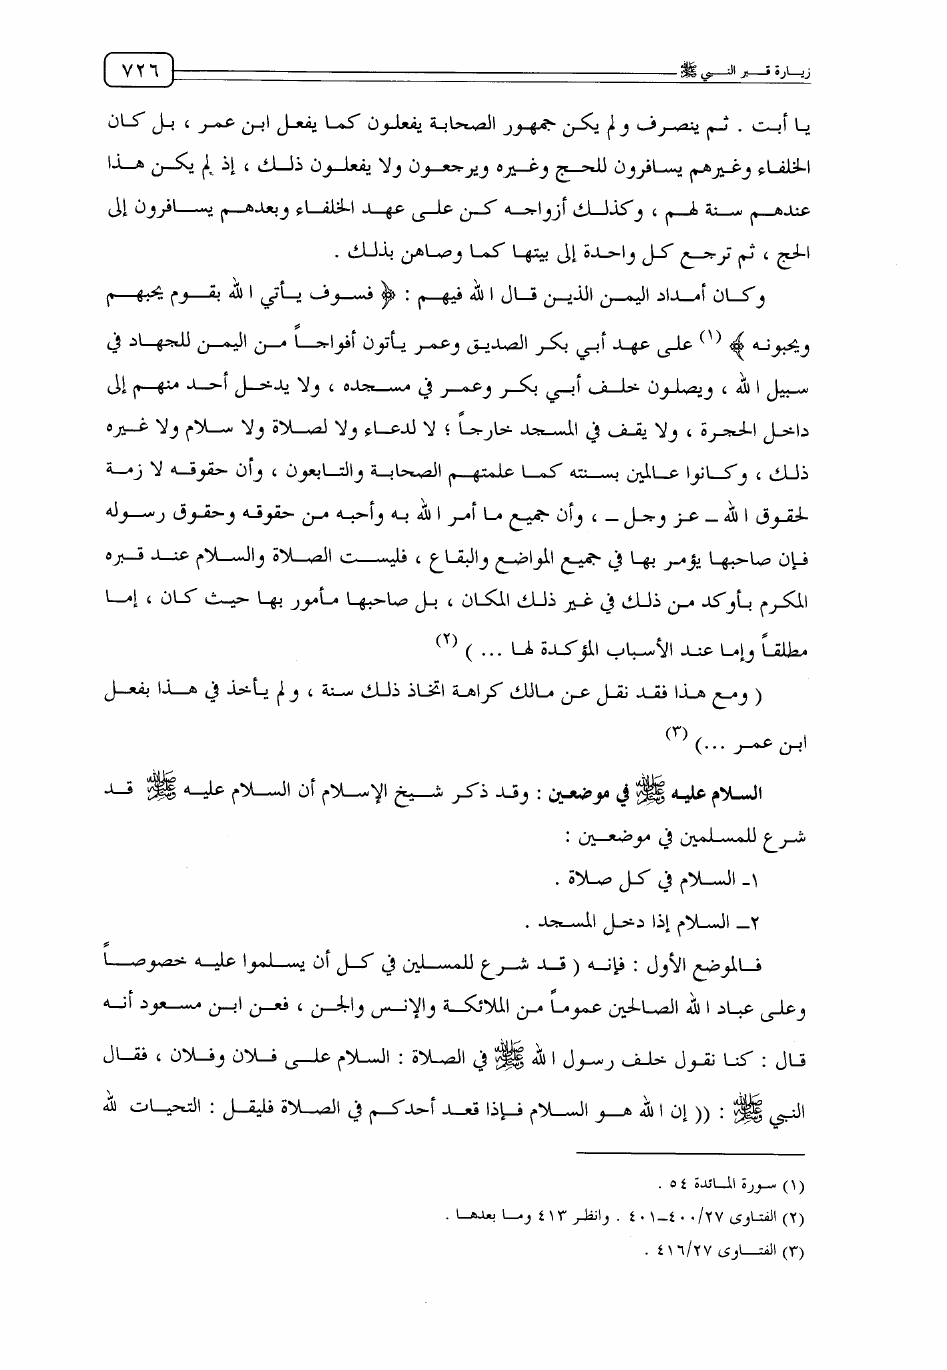 زيارة قبر النبي ﷺ
٧٢٦
يا أبت . ثم ينصرف ولم يكن جمهور الصحابة يفعلون كما يفعل ابن عمر ، بل كان
الخلفاء وغيرهم يسافرون للحج وغيره ويرجعون ولا يفعلون ذلك ، إذ لم يكن هذا
عندهم سنة لهم ، وكذلك أزواجه كن على عهد الخلفاء وبعدهم يسافرون إلى
الحج ، ثم ترجع كل واحدة إلى بيتها كما وصاهن بذلك .
وكان أمداد اليمن الذين قال الله فيهم : ﴿ فسوف يأتي الله بقوم يحبهم
ويحبونه ﴾ (١) على عهد أبي بكر الصديق وعمر يأتون أفواجاً من اليمن للجهاد في
سبيل الله ، ويصلون خلف أبي بكر وعمر في مسجده ، ولا يدخل أحد منهم إلى
داخل الحجرة ، ولا يقف في المسجد خارجاً ؛ لا لدعاء ولا لصلاة ولا سلام ولا غيره
ذلك ، وكانوا عالمين بسنته كما علمتهم الصحابة والتابعون ، وأن حقوقه لازمة
لحقوق الله ــ عز وجل ــ ، وأن جميع ما أمر الله به وأحبه من حقوقه وحقوق رسوله
فإن صاحبها يؤمر بها في جميع المواضع والبقاع ، فليست الصلاة والسلام عند قبره
المكرم بأوكد من ذلك في غير ذلك المكان ، بل صاحبها مأمور بها حيث كان ، إما
مطلقاً وإما عند الأسباب المؤكدة لها ... ) (٢)
( ومع هذا فقد نقل عن مالك كراهة اتخاذ ذلك سنة ، ولم يأخذ في هذا بفعل
ابن عمر ...) (٣)
السلام عليه ﷺ في موضعين : وقد ذكر شيخ الإسلام أن السلام عليه ﷺ قد
شرع للمسلمين في موضعين :
١ــ السلام في كل صلاة .
٢ــ السلام إذا دخل المسجد .
فالموضع الأول : فإنه ( قد شرع للمسلين في كل أن يسلموا عليه خصوصاً
وعلى عباد الله الصالحين عموماً من الملائكة والإنس والجن ، فعن ابن مسعود أنه
قال : كنا نقول خلف رسول الله ﷺ في الصلاة : السلام على فلان وفلان ، فقال
النبي ﷺ : (( إن الله هو السلام فإذا قعد أحدكم في الصلاة فليقل : التحيات لله
(١) سورة المائدة ٥٤ .
(٢) الفتاوى ٤٠٠/٢٧ــ٤٠١ . وانظر ٤١٣ وما بعدها .
(٣) الفتاوى ٤١٦/٢٧ .